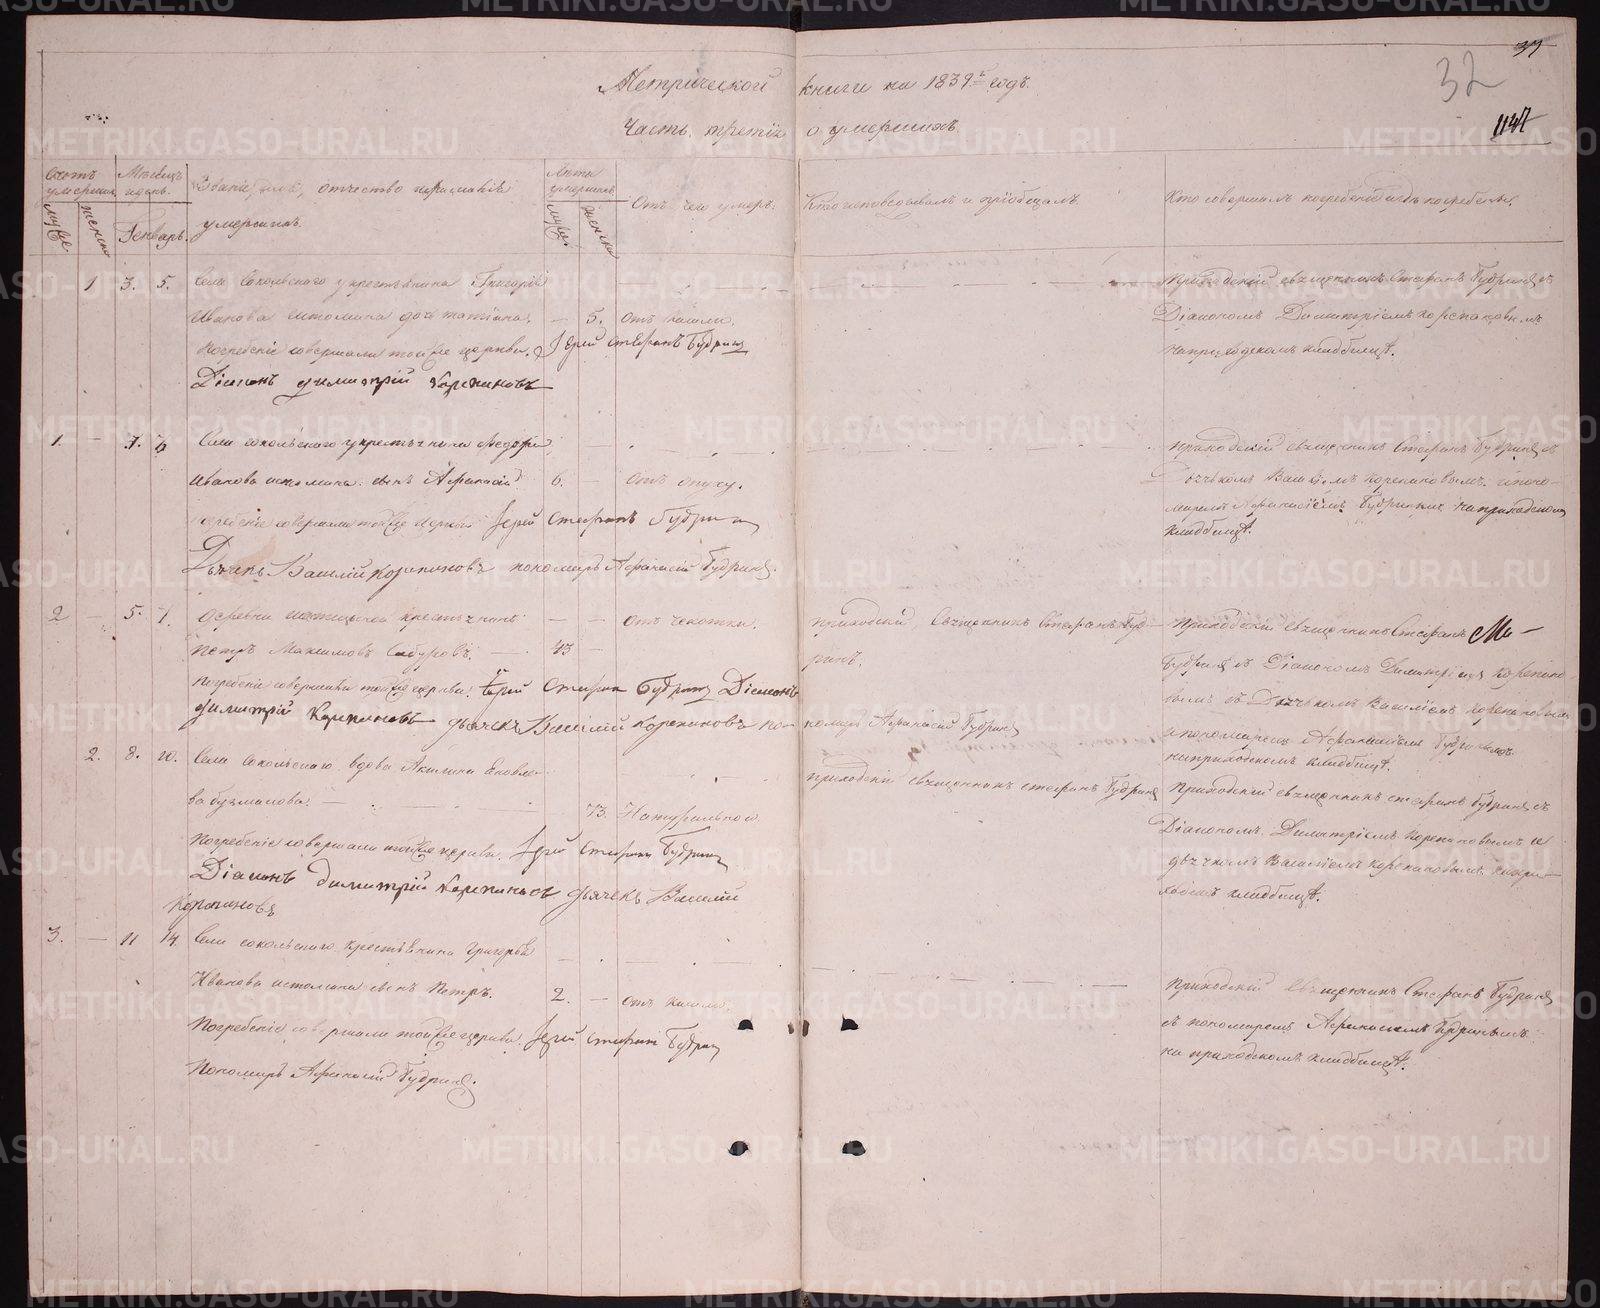 37
32
1147
Метрической книги на 1839й годъ.
Часть третія о умершихъ.
Счотъ умершихъ
Мѣсяцъ и день.
Званіе, имя, отчество и фамилія умершихъ.
Лѣты умершихъ
Отъ чего умеръ.
Кто исповѣдывалъ и пріобщалъ
Кто совершалъ погребеніе и гдѣ погребены.
муже
женска
Генварь.
муже.
женска
1 3. 5. Села Сокольскаго у крестьянина Григорія
Иванова Истомина дочь Татіана. — 5. Отъ кашли.
Погребеніе совершали той же церкви. Іерей Стефанъ Будринъ
Діаконъ Димитрій Корепановъ
Приходскій священникъ Стефанъ Будринъ съ
Діакономъ Димитріемъ Корепановымъ
на приходскомъ кладбищѣ.
1. — 3. 6. Села Сокольскаго у крестьянина Федора
Иванова Истомина сынъ Афанасій 6. — Отъ опуху.
Погребеніе совершали той же церкви Іерей Стефанъ Будринъ
Дьячекъ Василій Корепановъ пономарь Афанасій Будринъ.
Приходскій священникъ Стефанъ Будринъ съ
Дьячкомъ Василіемъ Корепановымъ и поно-
маремъ Афанасіемъ Будринымъ на приходскомъ
кладбищѣ.
2 — 5. 7. Деревни крестьянинъ — — Отъ чахотки.
Петръ Максимовъ Сабуровъ. — 43 —
Погребеніе совершали той же церкви Іерей Стефанъ Будринъ Діаконъ
Димитрій Корепановъ дьячекъ Василій Корепановъ по-
номарь Афанасій Будринъ
Приходскій священникъ Стефанъ Буд-
ринъ.
Приходскій священникъ Стефанъ
Будринъ съ Діакономъ Димитріемъ Корепано-
вымъ съ Дьячкомъ Василіемъ Корепановымъ
и пономаремъ Афанасіемъ Будринымъ
на приходскомъ кладбищѣ.
2. 8. 10. Села Сокольскаго вдова Акилина Яковле-
ва Бузманова. — 73. Натуральной
Погребеніе совершали той же церкви. Іерей Стефанъ Будринъ
Діаконъ Димитрій Корепановъ дьячекъ Василій
Корепановъ
Приходскій священникъ Стефанъ Будринъ
Приходскій священникъ Стефанъ Будринъ съ
Діакономъ Димитріемъ Корепановымъ и
дьячкомъ Василіемъ Корепановымъ на при-
ходскомъ кладбищѣ.
3. — 11 14. Села Сокольскаго крестьянина Григорья
Иванова Истомина сынъ Петръ. 2. — Отъ кашли
Погребеніе совершали той же церкви. Іерей Стефанъ Будринъ
Пономарь Афанасій Будринъ.
Приходскій священникъ Стефанъ Будринъ
съ пономаремъ Афанасіемъ Будринымъ
на приходскомъ кладбищѣ.
METRIKI.GASO-URAL.RU